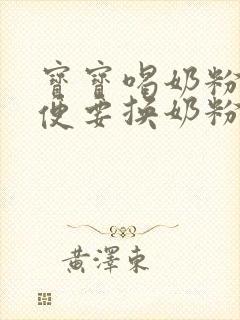 寶寶喝奶粉
便要換奶粉
黃澤東